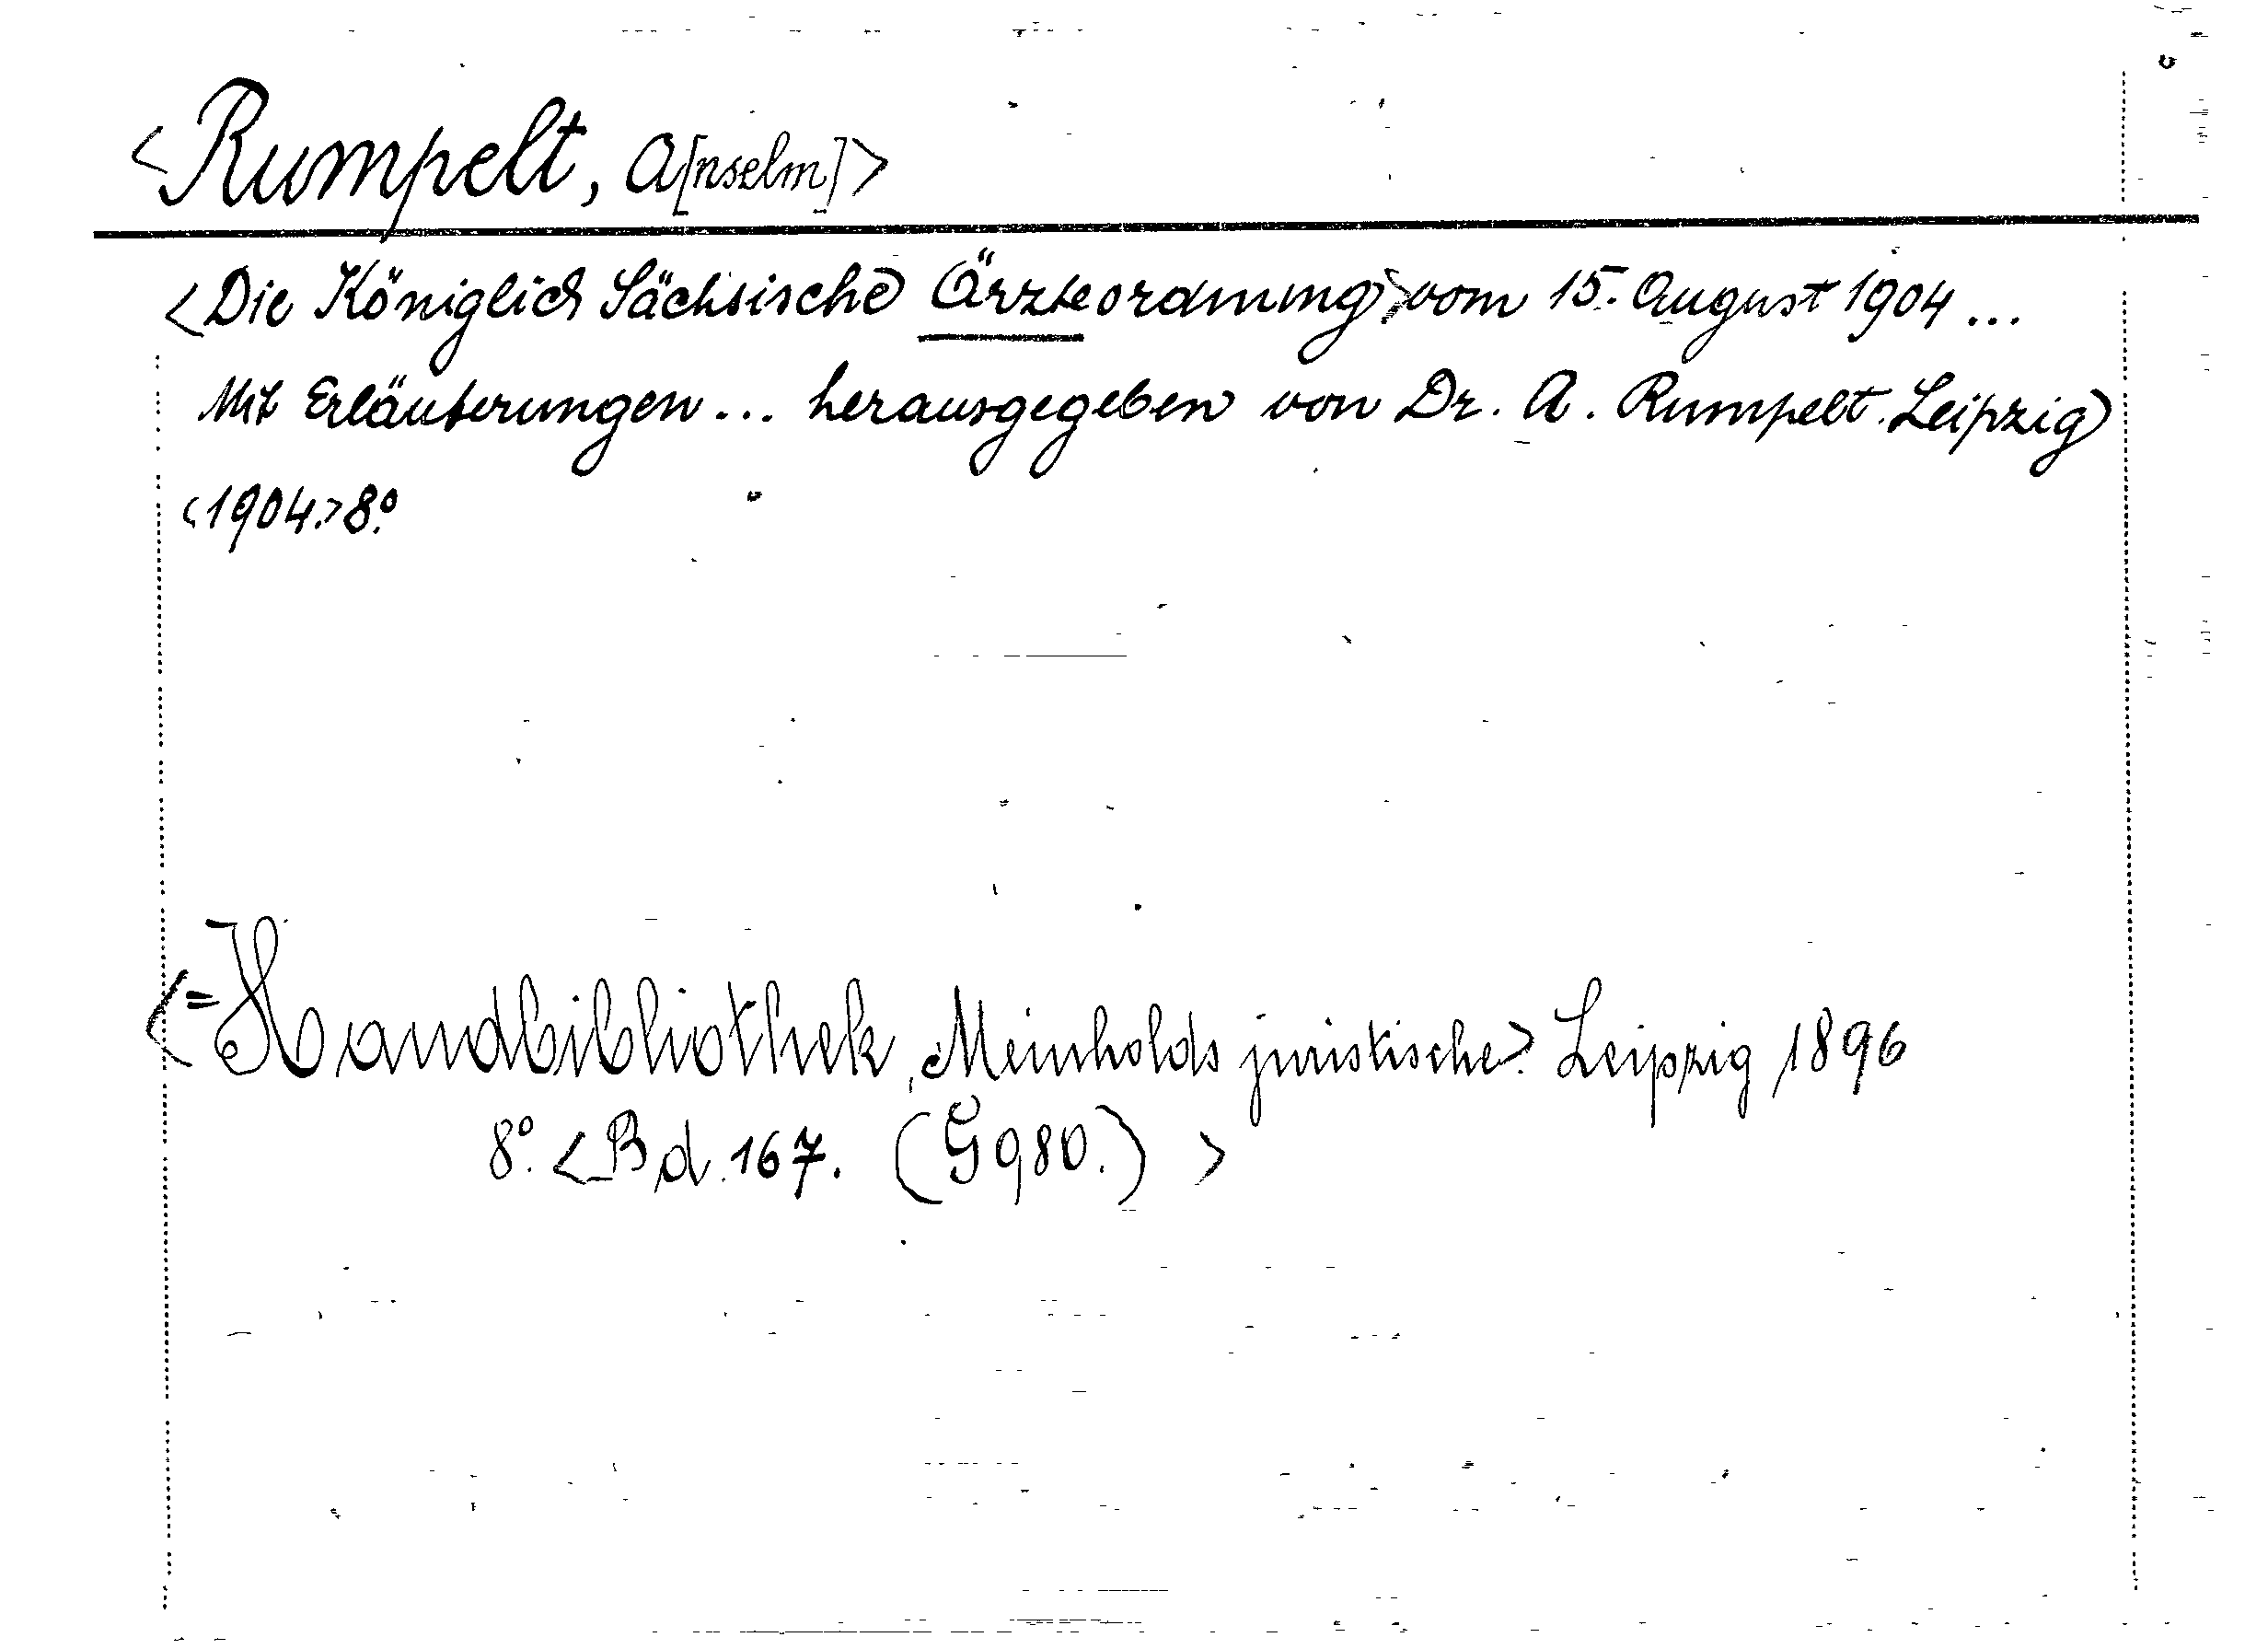 <Rumpelt, A[nselm]>
<Die Königlich Sächsische Ärzteordnung> vom 15. August 1904 ...
Mit Erläuterungen ... herausgegeben von Dr. A. Rumpelt. Leipzig
<1904.> 8.°
<= Handbibliothek, Meinholds juristische.> Leipzig 1896
8.° <Bd. 167. (G 980.) >